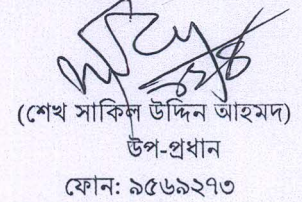 (শেখ সাকিল উদ্দিন আহমদ)
উপ-প্রধান
ফোন: ৯৫৬৯২৭৩